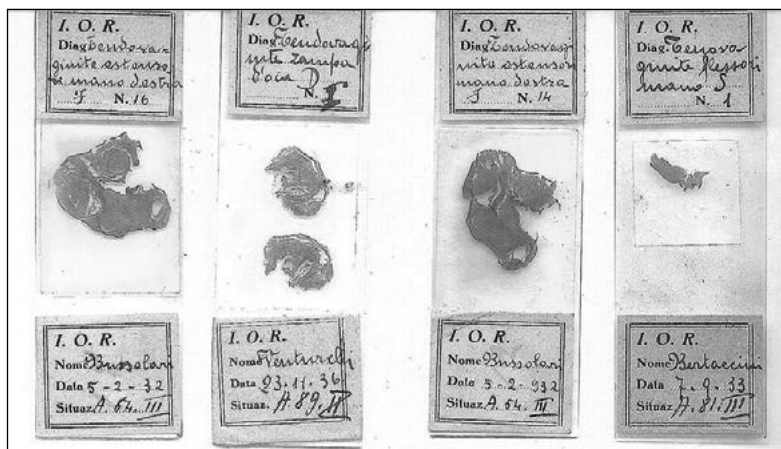 I. O. R.
Diag. Tendova-
ginite estensori
mano destra
N. 16
I. O. R.
Diag. Tendovagi
nite zampa
d'oca D
N. I
I. O. R.
Diag. Tendovagi
nite estensori
mano destra
N. 14
I. O. R.
Diag. Tenova
ginite flessori
mano S
N. 1
I. O. R.
Nome Bussolari
Data 5-2-32
Situaz. A. 64. III
I. O. R.
Nome Venturelli
Data 23.11.36
Situaz. A 89. II
I. O. R.
Nome Bussolari
Data 5-2-932
Situaz. A. 64. III
I. O. R.
Nome Bertaccini
Data 7.9.33
Situaz. A. 81. III